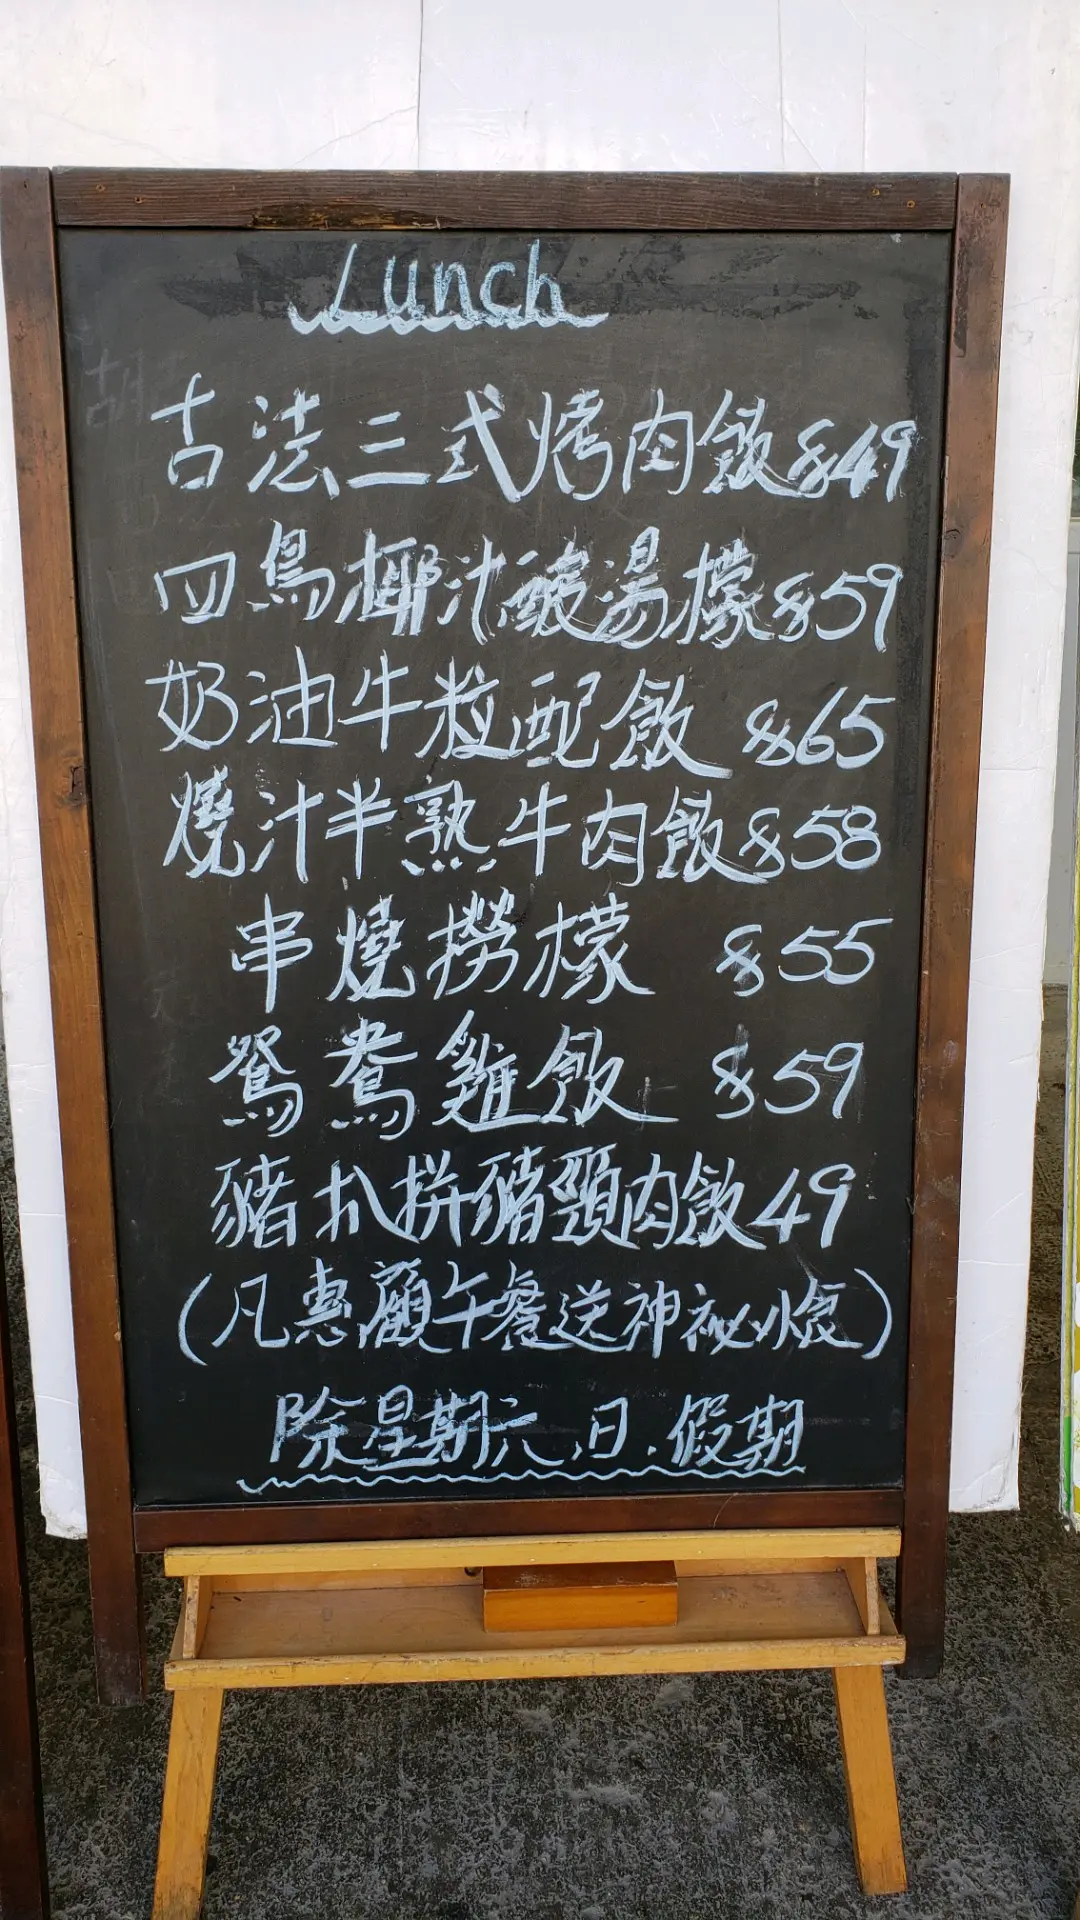 Lunch
古法三式烤肉飯$49
四鳥椰汁酸湯檬$59
奶油牛粒配飯 $65
燒汁半熟牛肉飯$58
串燒撈檬 $55
鴛鴦雞飯 $59
豬扒拼豬頸肉飯49
(凡惠顧午餐送神祕小食)
除星期六.日.假期